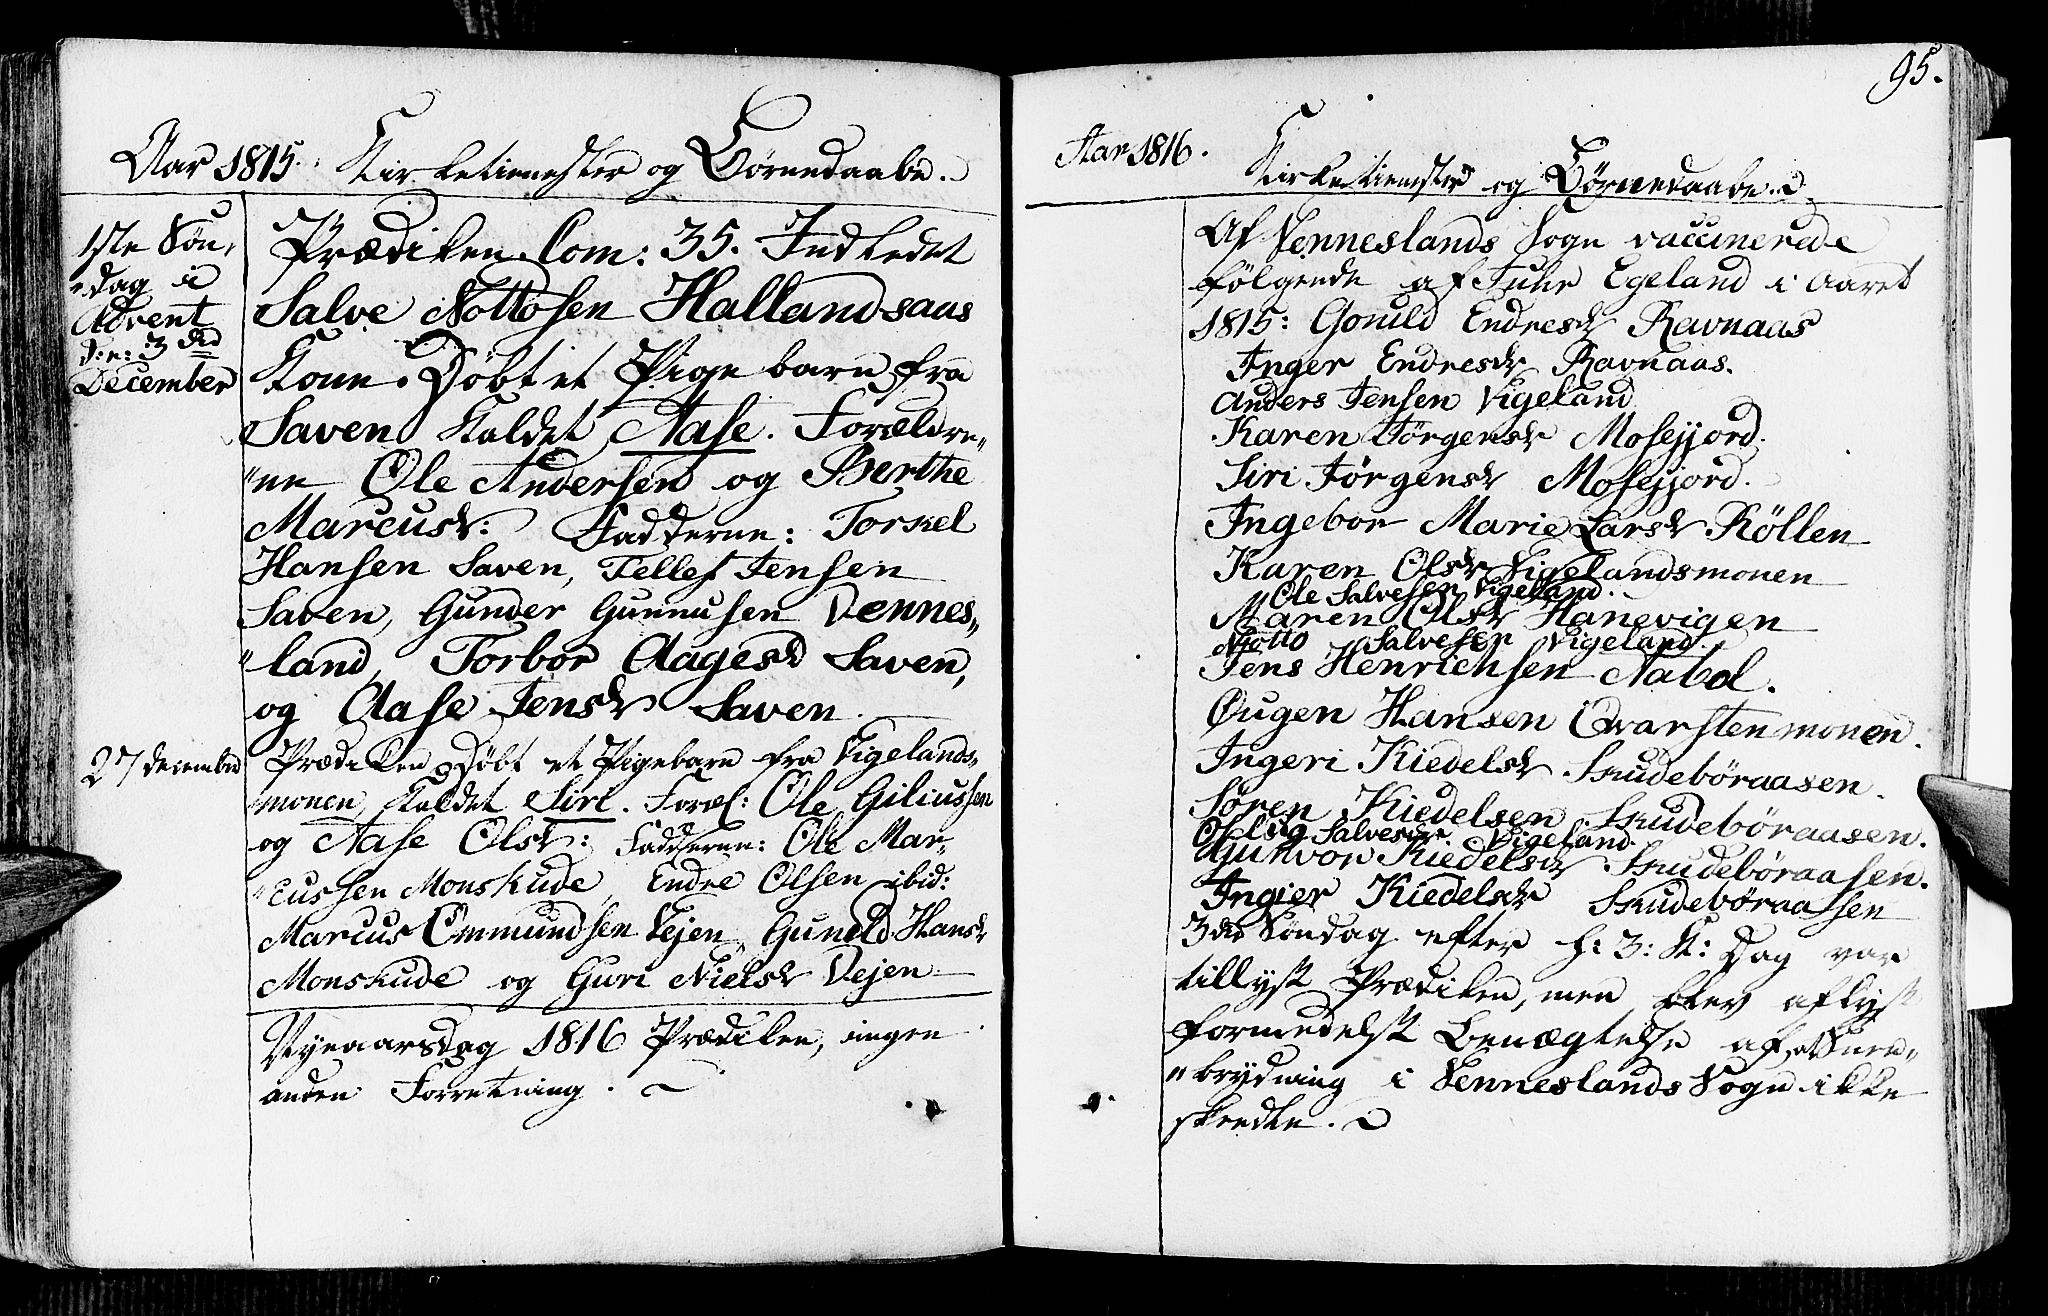 Aar 1815. Kirketienester og Börnedaabe.
1ste Søn-
dag i
Advent
d: e: 3die
December
Prædiken. Com: 35. Indledet
Salve Nottosen Hallandsaas
Kone. Döbt et Pige barn fra
Saven kaldet Aase. Forældre„
„ne Ole Andersen og Berthe
Marcusdr: Fadderne: Torkel
Hansen Saven, Tellef Jensen
Saven, Gunder Gunnusen Vennes„
„land, Torbor Aagesd Saven,
og Aase Jensdr Saven.
27 december
Prædiken Döbt et Pigebarn fra Vigelands„
monen, kaldet Siri. Foræl: Ole Giliussen
og Aase Olsdr: Fadderne: Ole Mar„
„eussen Monskude, Endre Olsen ibid:
Marcus Ommundsen Vejen, Guneld Hansdr
Monskude og Guri Nielsdr Vejen.
Nynaarsdag 1816 Prædiken, ingen
anden Forretning.
95.
Aar 1816.
Kirketienester og Börnedaabe.
Af Venneslands Sogn vaccinerede
følgende af Juhr Egeland i Aaret
1815: Gonild Endresdr Ravnaas
Inger Endresdr Ravnaas.
Anders Jensen Vigeland
Karen Jörgensdr Mosejjord.
Siri Jörgensdr Mosejjord.
Ingebor Marie Larsdr Röllen
Karen Olsdr Vigelandsmonen
Ole Salvesen Vigeland.
Maren Olsdr Hanevigen
Notto Salvesen Vigeland.
Jens Henrichsen Nabol.
Öugen Hansen Qvarstenmonen.
Ingeri Kiedelsdr Skudeböraasen.
Sören Kiedelsen Skudeböraasen.
Oslug Salvesdr Vigeland.
Gunvor Kiedelsdr Skudeböraasen.
Ingier Kiedelsdr Skudeböraasen
3die Söndag efter H: 3: K: Dag var
tillyst Prædiken, men blev aflyst
formedelst Benægtelse af Snee„
„brydning i Venneslands Sogn ikke
skeedte.